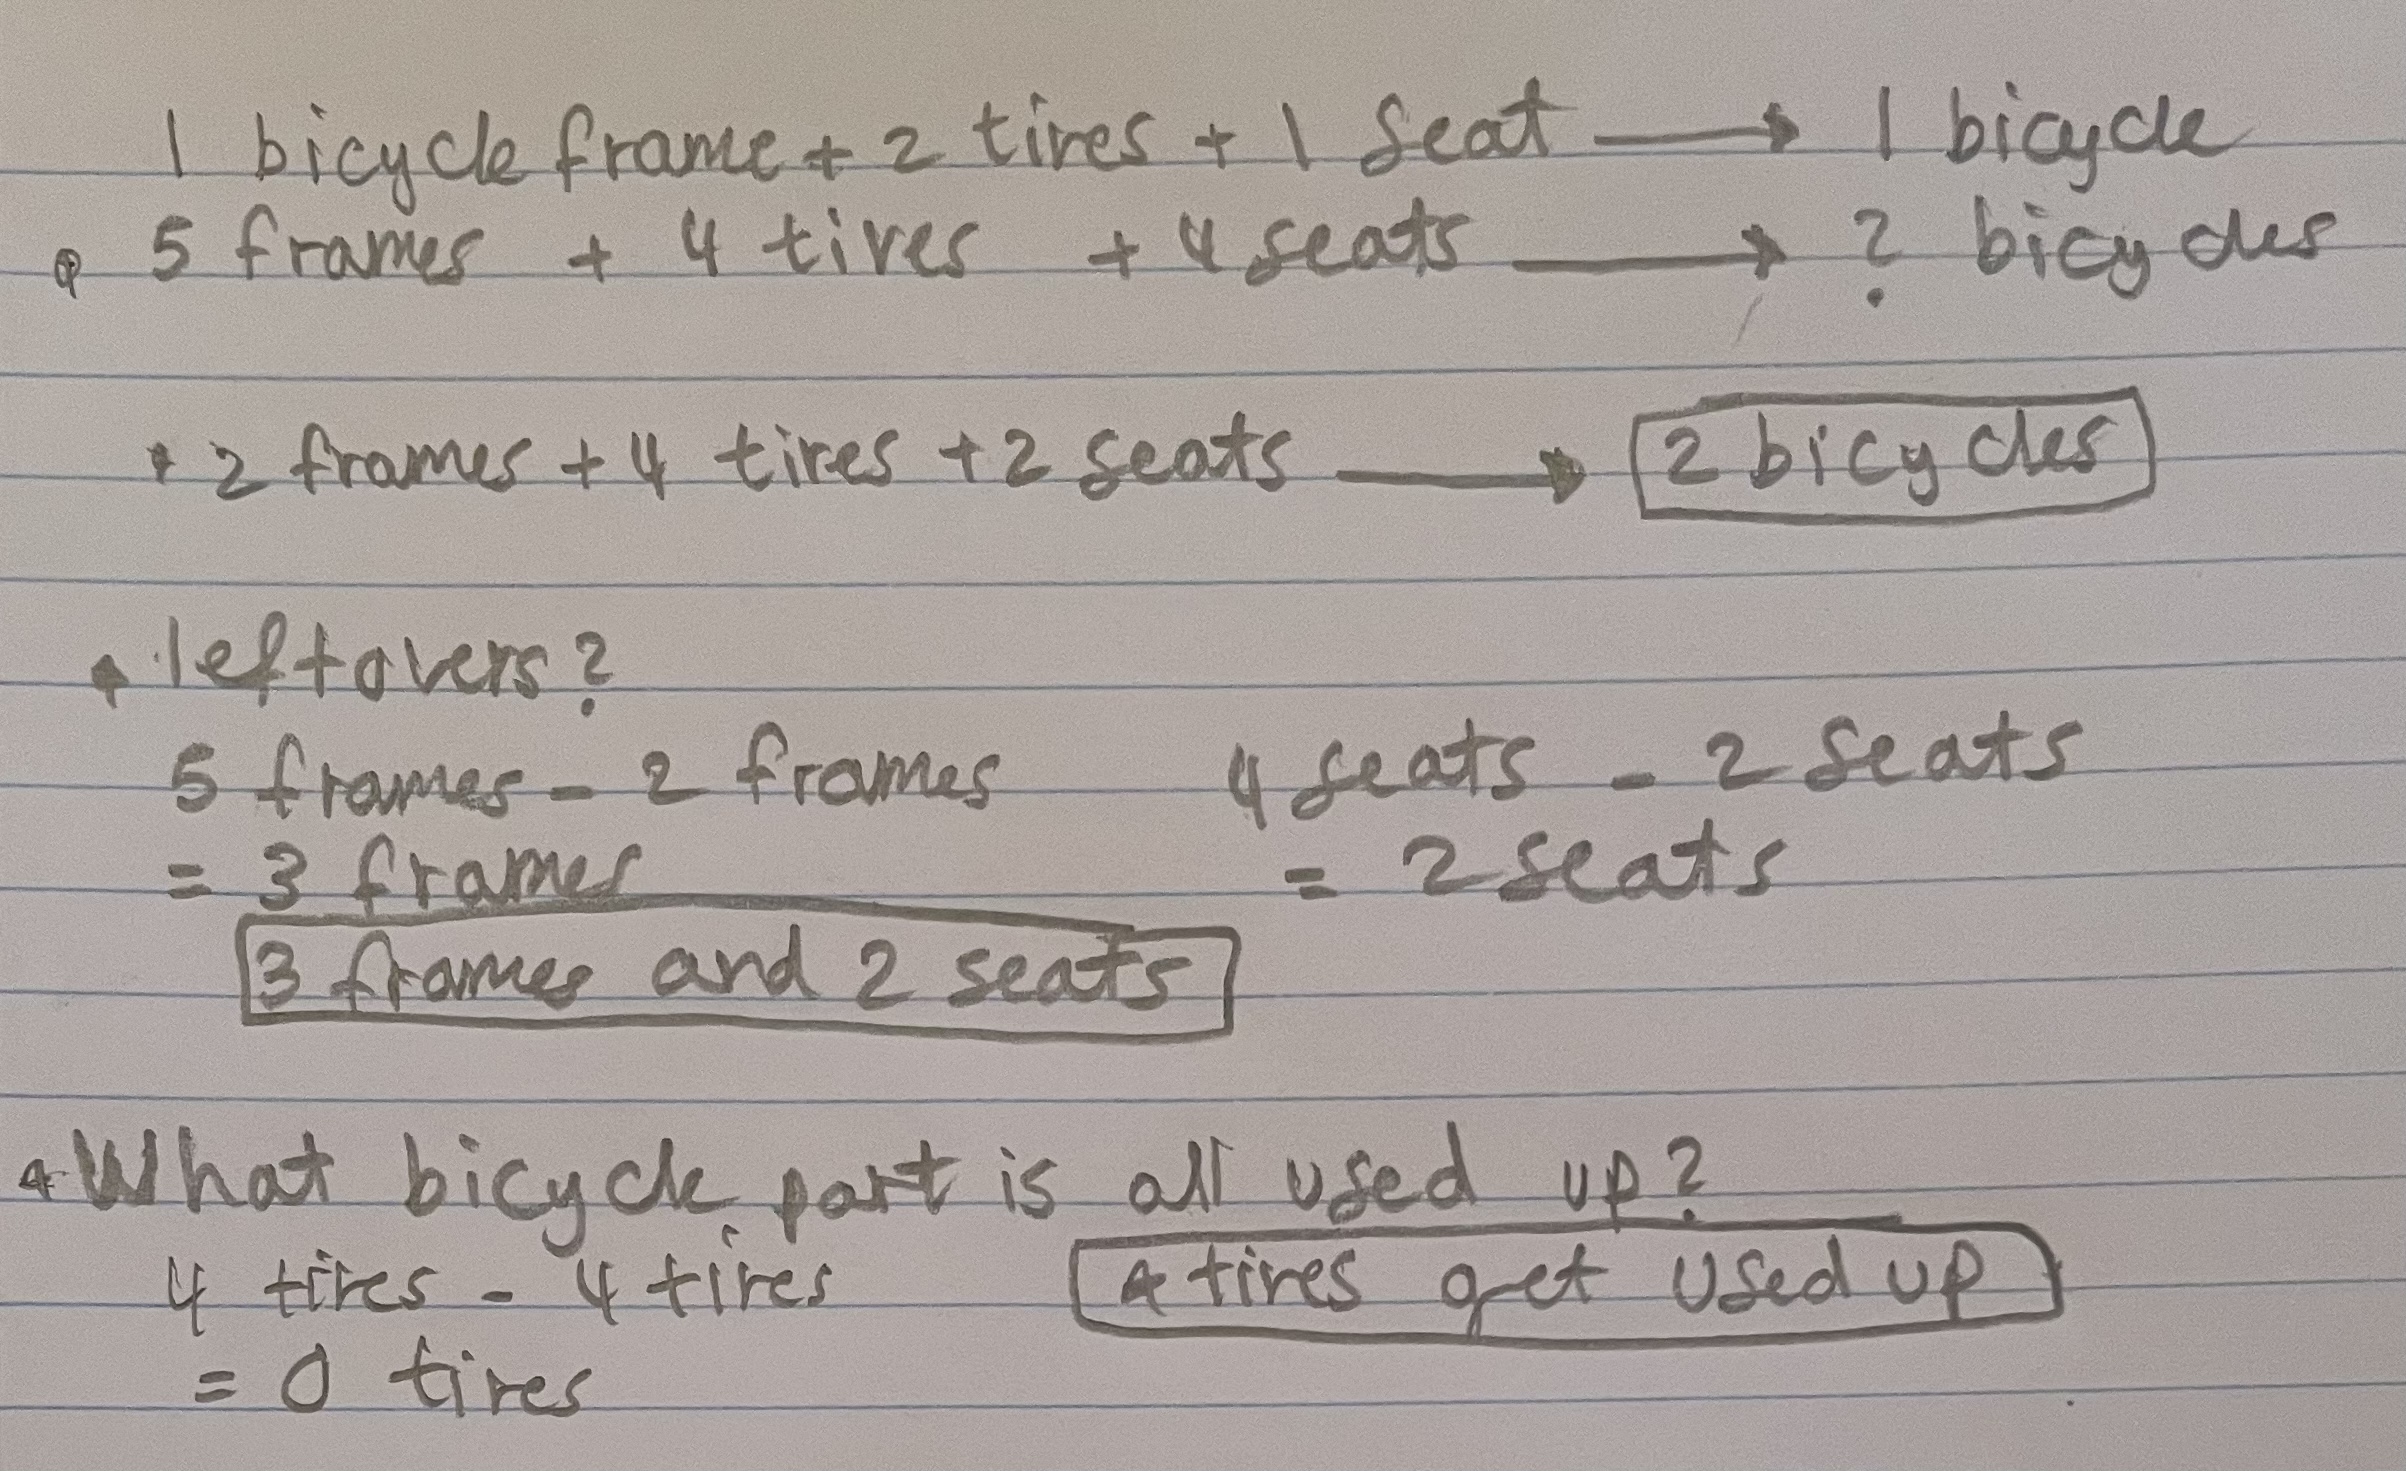 1 bicycle frame + 2 tires + 1 seat → 1 bicycle
5 frames + 4 tires + 4 seats → ? bicycles
2 frames + 4 tires + 2 seats → 2 bicycles
leftovers?
5 frames - 2 frames 4 seats - 2 seats
= 3 frames = 2 seats
3 frames and 2 seats
What bicycle part is all used up?
4 tires - 4 tires 4 tires get used up
= 0 tires